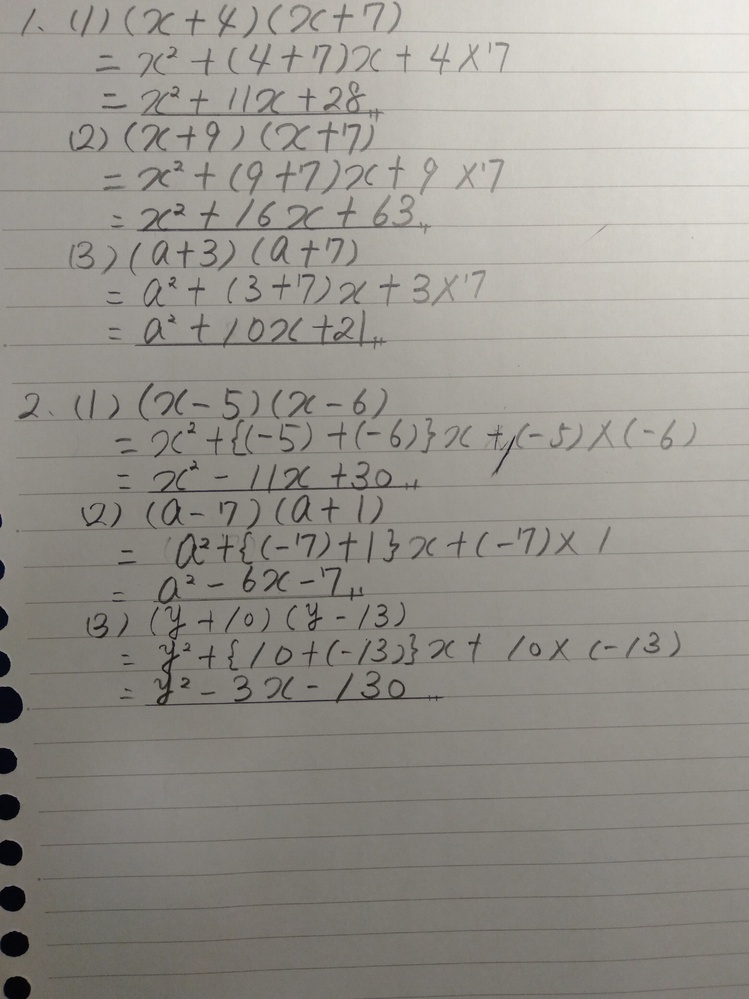 1. (1) (x+4)(x+7)
= x² + (4+7)x + 4×7
= x² + 11x + 28
(2) (x+9)(x+7)
= x² + (9+7)x + 9×7
= x² + 16x + 63
(3) (a+3)(a+7)
= a² + (3+7)x + 3×7
= a² + 10x + 21
2. (1) (x-5)(x-6)
= x² + {(-5) + (-6)}x + (-5)×(-6)
= x² - 11x + 30
(2) (a-7)(a+1)
= a² + {(-7)+1}x + (-7)×1
= a² - 6x - 7
(3) (y+10)(y-13)
= y² + {10+(-13)}x + 10×(-13)
= y² - 3x - 130